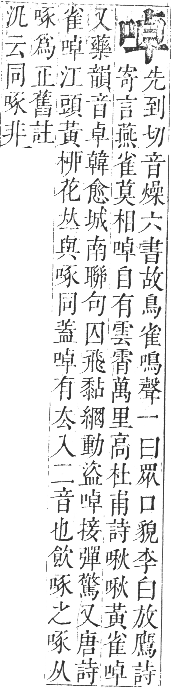 啅
先到切音燥六書故鳥雀鳴聲一曰眾口貌李白放鷹詩
寄言燕雀莫相啅自有雲霄萬里高杜甫詩啾啾黃雀啅
又藥韻音卓韓愈城南聯句囚飛黏網動盜啅接彈驚又唐詩
雀啅江頭黃栁花丛與啄同蓋啅有厺入二音也飲啄之啄从
啄爲正舊註
汎云同啄非